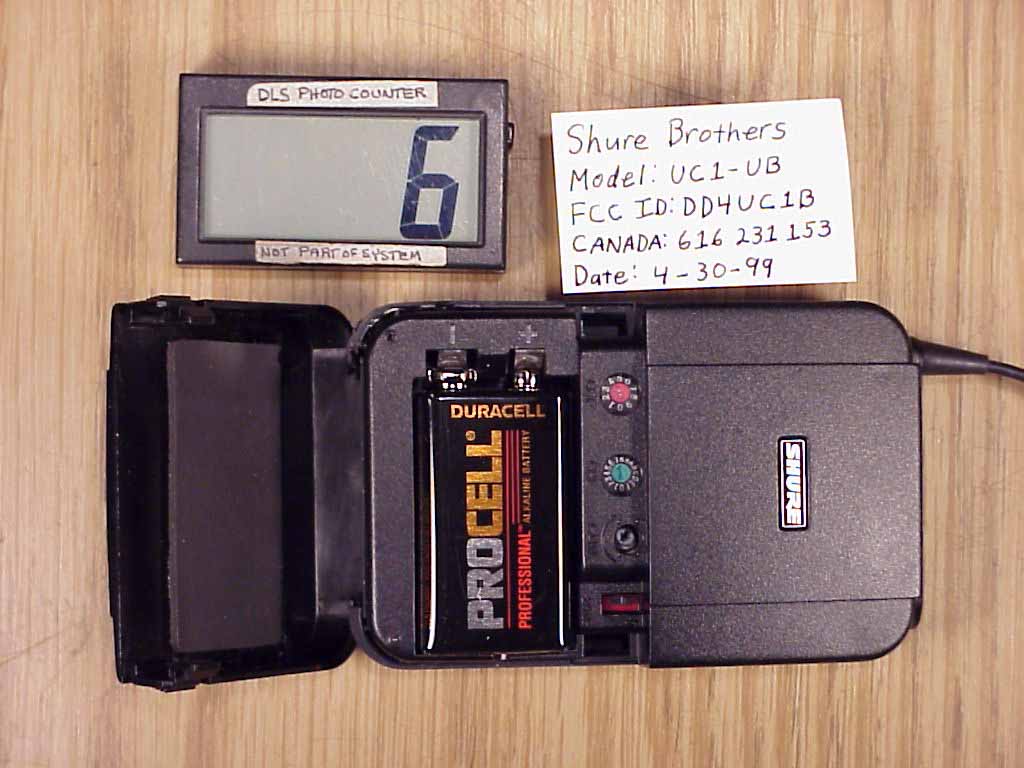 DLS PHOTO COUNTER
6
NOT PART OF SYSTEM
Shure Brothers
Model: UC1-UB
FCC ID: DD4UC1B
CANADA: 616 231 153
Date: 4-30-99
- +
DURACELL
PROCELL®
PROFESSIONAL™ ALKALINE BATTERY
SHURE